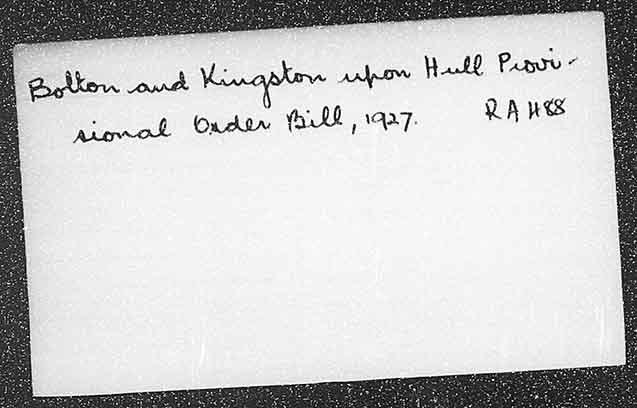 Bolton and Kingston upon Hull Provi-
sional Order Bill, 1927. RAH88